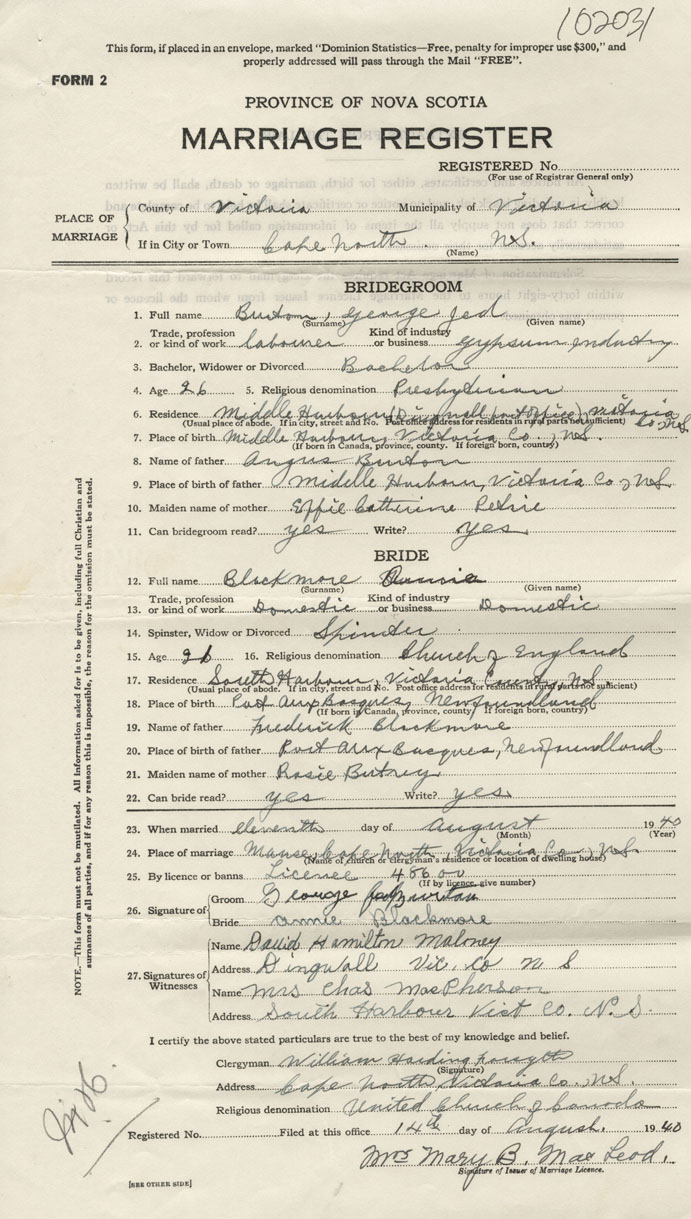 102031
This form, if placed in an envelope, marked "Dominion Statistics—Free, penalty for improper use $300," and
properly addressed will pass through the Mail "FREE".
FORM 2
PROVINCE OF NOVA SCOTIA
MARRIAGE REGISTER
REGISTERED No.
(For use of Registrar General only)
PLACE OF MARRIAGE
County of Victoria Municipality of Victoria
If in City or Town Cape North N.S.
(Name)
BRIDEGROOM
1. Full name Burton, George Jed
(Surname) (Given name)
2. Trade, profession or kind of work labourer Kind of industry or business gypsum industry
3. Bachelor, Widower or Divorced Bachelor
4. Age 26 5. Religious denomination Presbyterian
6. Residence Middle Harbour (Dingwall post office) Victoria Co., N.S.
(Usual place of abode. If in city, street and No. Post office address for residents in rural parts not sufficient)
7. Place of birth Middle Harbour, Victoria Co., N.S.
(If born in Canada, province, county. If foreign born, country)
8. Name of father Angus Burton
9. Place of birth of father Middle Harbour, Victoria Co., N.S.
10. Maiden name of mother Effie Catherine Petrie
11. Can bridegroom read? yes Write? yes
BRIDE
12. Full name Blackmore Annie
(Surname) (Given name)
13. Trade, profession or kind of work Domestic Kind of industry or business Domestic
14. Spinster, Widow or Divorced Spinster
15. Age 26 16. Religious denomination Church of England
17. Residence South Harbour, Victoria County, N.S.
(Usual place of abode. If in city, street and No. Post office address for residents in rural parts not sufficient)
18. Place of birth Port Aux Basques, Newfoundland
(If born in Canada, province, county. If foreign born, country)
19. Name of father Frederick Blackmore
20. Place of birth of father Port Aux Basques, Newfoundland
21. Maiden name of mother Rosie
22. Can bride read? yes Write? yes
23. When married eleventh day of August 1940
(Month) (Year)
24. Place of marriage Manse, Cape North, Victoria Co., N.S.
(Name of church or clergyman's residence or location of dwelling house)
25. By licence or banns Licence 48600
(If by licence, give number)
26. Signature of
Groom George Burton
Bride Annie Blackmore
27. Signatures of Witnesses
Name David Hamilton Maloney
Address Dingwall Vic. Co N S
Name Mrs Chas MacPherson
Address South Harbour Vict Co. N.S.
I certify the above stated particulars are true to the best of my knowledge and belief.
Clergyman William Harding Forsyth
(Signature)
Address Cape North, Victoria Co., N.S.
Religious denomination United Church of Canada
Registered No. Filed at this office 14th day of August, 1940
Mrs Mary B. MacLeod.
Signature of Issuer of Marriage Licence.
[SEE OTHER SIDE]
NOTE.—This form must not be mutilated. All information asked for is to be given, including full Christian and
surnames of all parties, and if for any reason this is impossible, the reason for the omission must be stated.